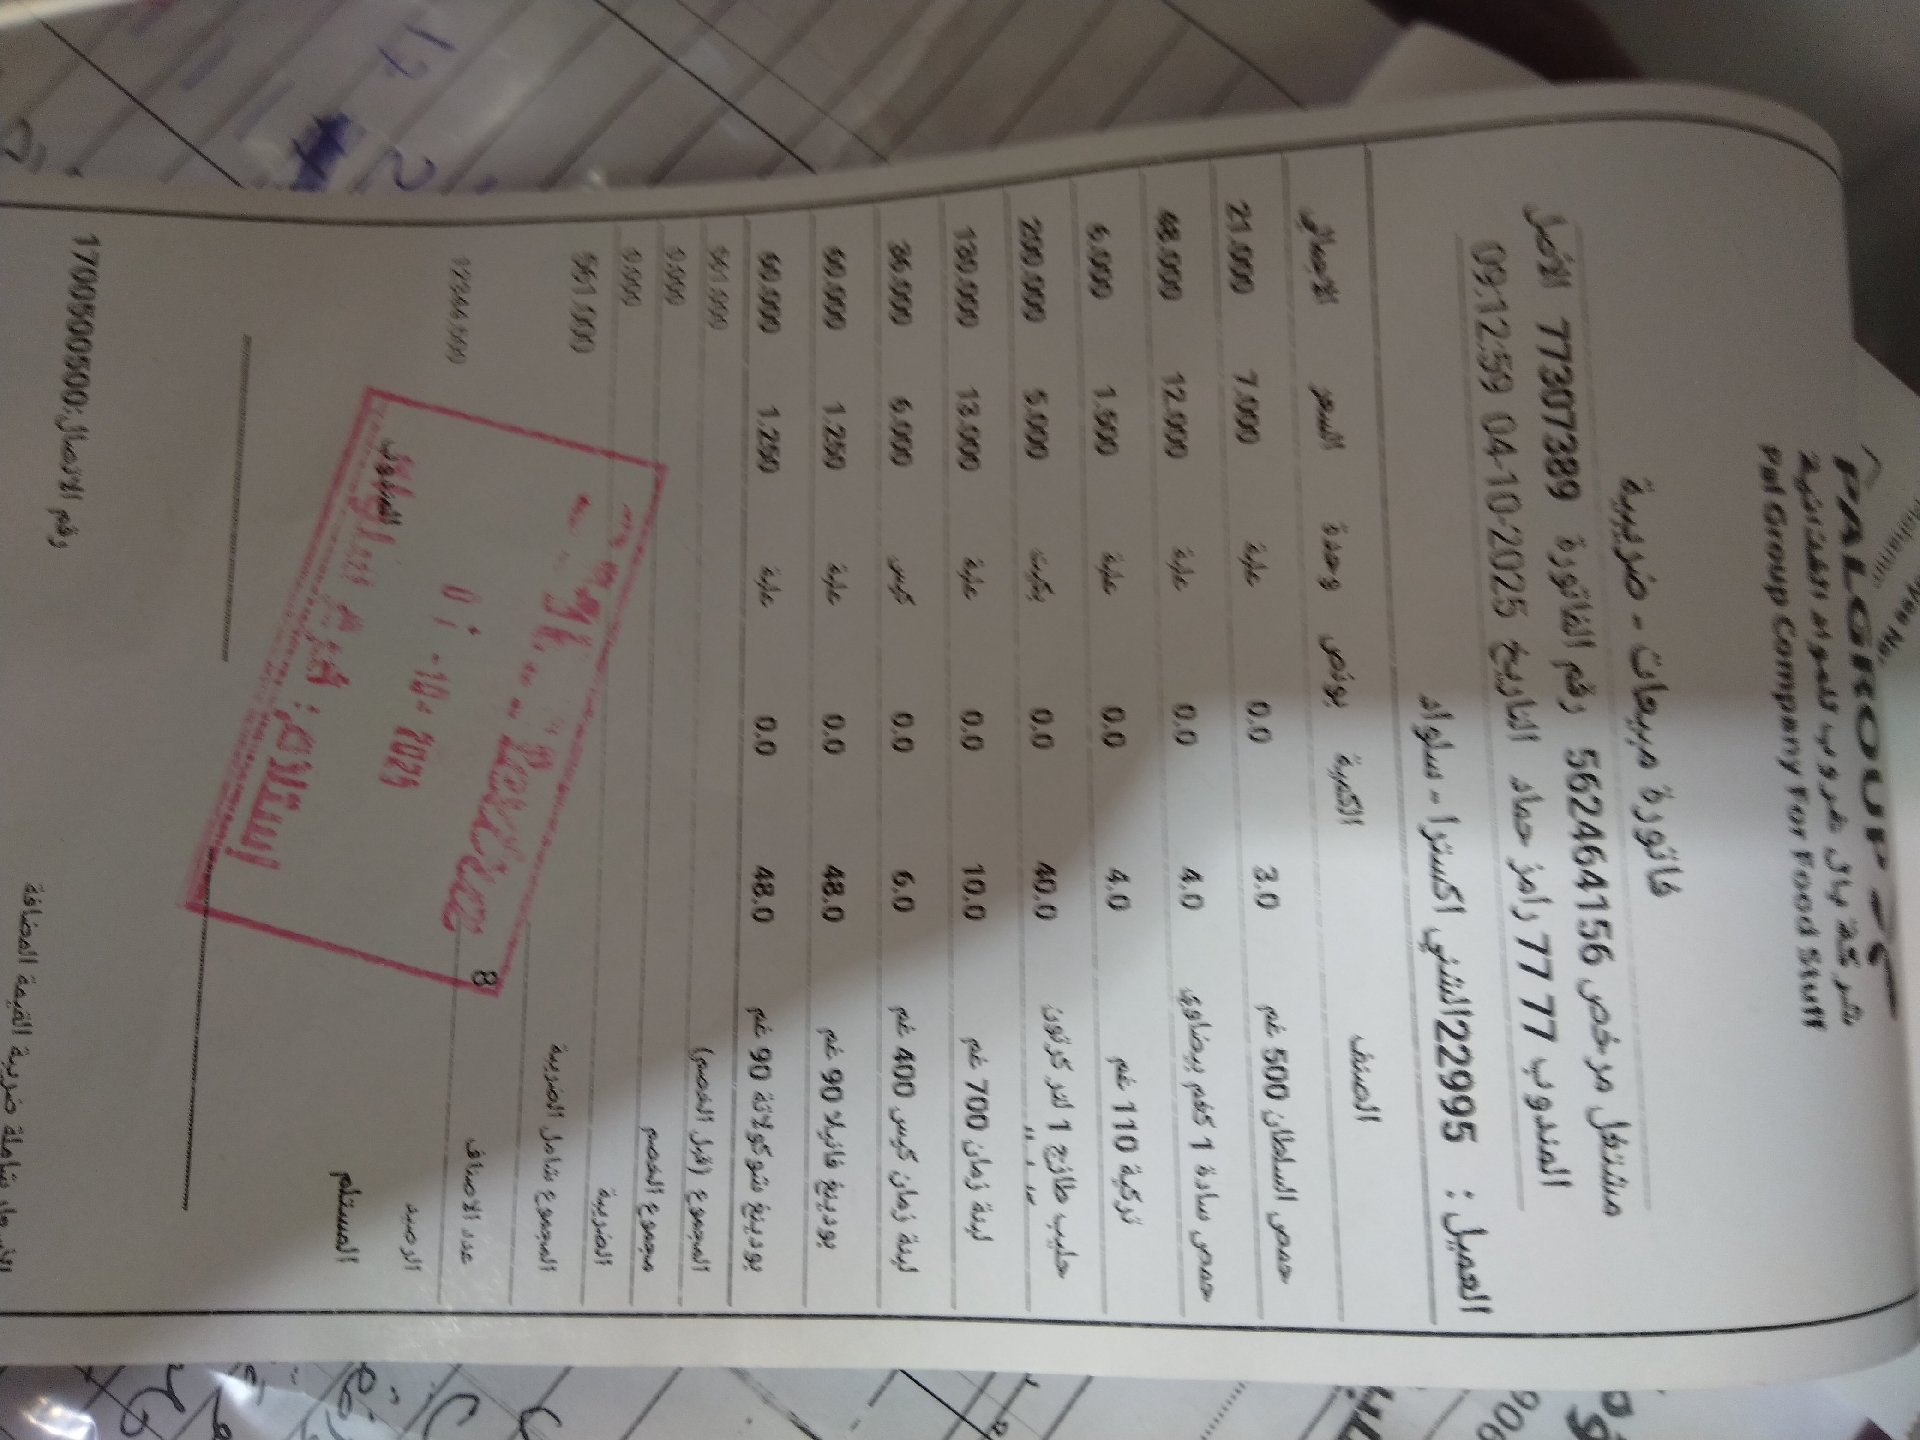 PALGROUP
شركة بال غروب للمواد الغذائية
Pal Group Company For Food Stuff
فاتورة مبيعات - ضريبية
مشتغل مرخص 562464156 رقم الفاتورة 77307389 الأصل
المندوب 77 77 رامز حماد التاريخ 04-10-2025 09:12:59
العميل : 22995الشني اكسترا - سلواد
الصنف الكمية بونص وحدة السعر الاجمالي
حمص السلطان 500 غم 3.0 0.0 علبة 7.000 21.000
حمص سادة 1 كغم بيضاوي 4.0 0.0 علبة 12.000 48.000
تركية 110 غم 4.0 0.0 علبة 1.500 6.000
حليب طازج 1 لتر كرتون 40.0 0.0 بكيت 5.000 200.000
لبنة زمان 700 غم 10.0 0.0 علبة 13.000 130.000
لبنة زمان كيس 400 غم 6.0 0.0 كيس 6.000 36.000
بودينغ فانيلا 90 غم 48.0 0.0 علبة 1.250 60.000
بودينغ شوكولاتة 90 غم 48.0 0.0 علبة 1.250 60.000
المجموع (قبل الخصم) 561.000
مجموع الخصم 0.000
الضريبة 0.000
المجموع شامل الضريبة 561.000
عدد الاصناف 8
الرصيد
المستلم
إستلام: فرع سلواد
رقم الاتصال:1700500500
شاملة ضريبة القيمة المضافة